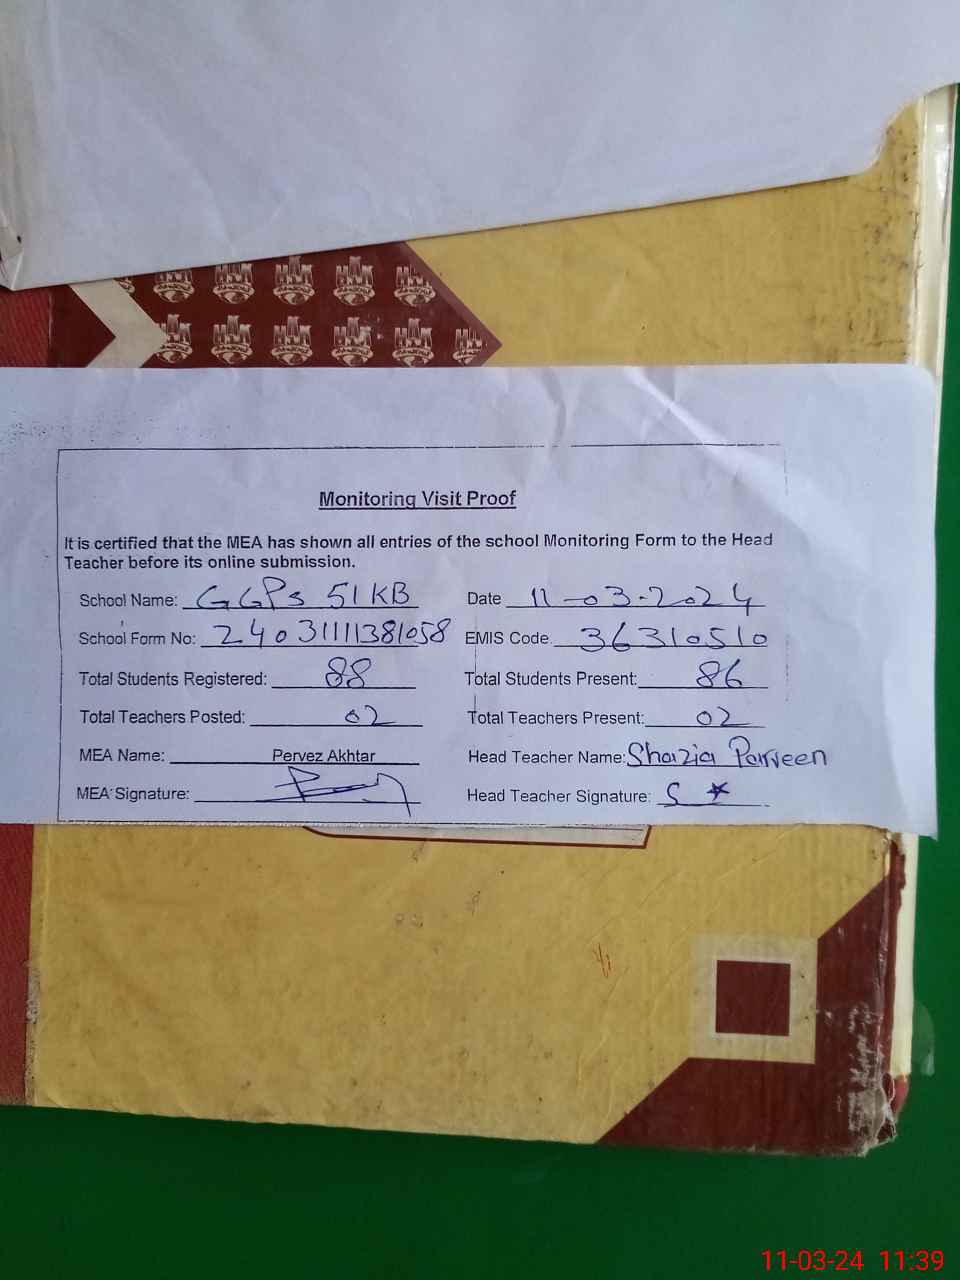 Monitoring Visit Proof
It is certified that the MEA has shown all entries of the school Monitoring Form to the Head
Teacher before its online submission.
School Name: GGPs 51KB Date 11-03-2024
School Form No: 24031111381058 EMIS Code 36310510
Total Students Registered: 88 Total Students Present: 86
Total Teachers Posted: 02 Total Teachers Present: 02
MEA Name: Pervez Akhtar Head Teacher Name: Shazia Parveen
MEA Signature: Head Teacher Signature:
11-03-24 11:39